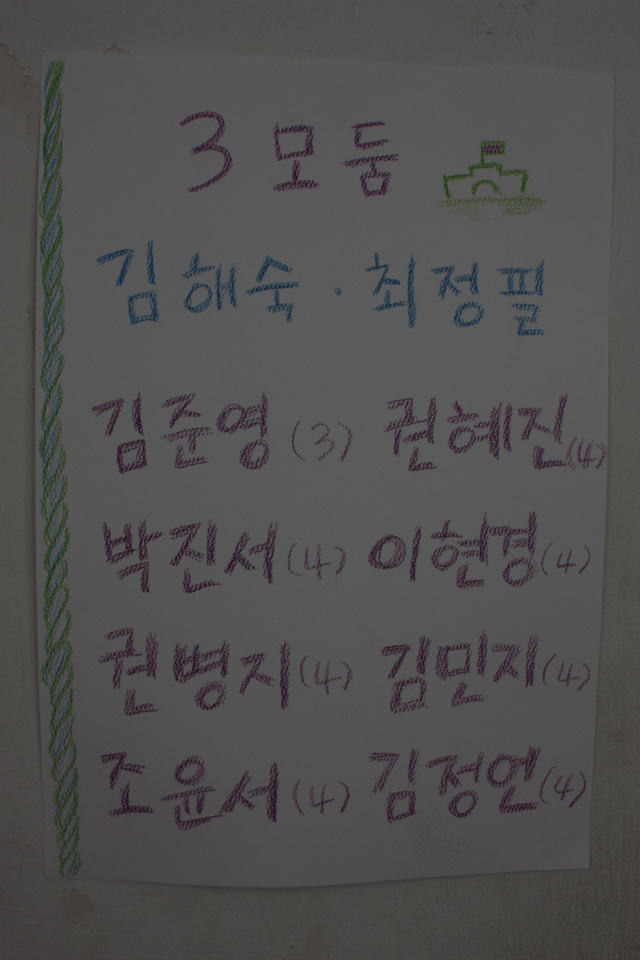 3 모둠
김해숙 · 최정필
김준영 (3) 권혜진 (4)
박진서 (4) 이현경 (4)
권병지 (4) 김민지 (4)
조윤서 (4) 김정연 (4)